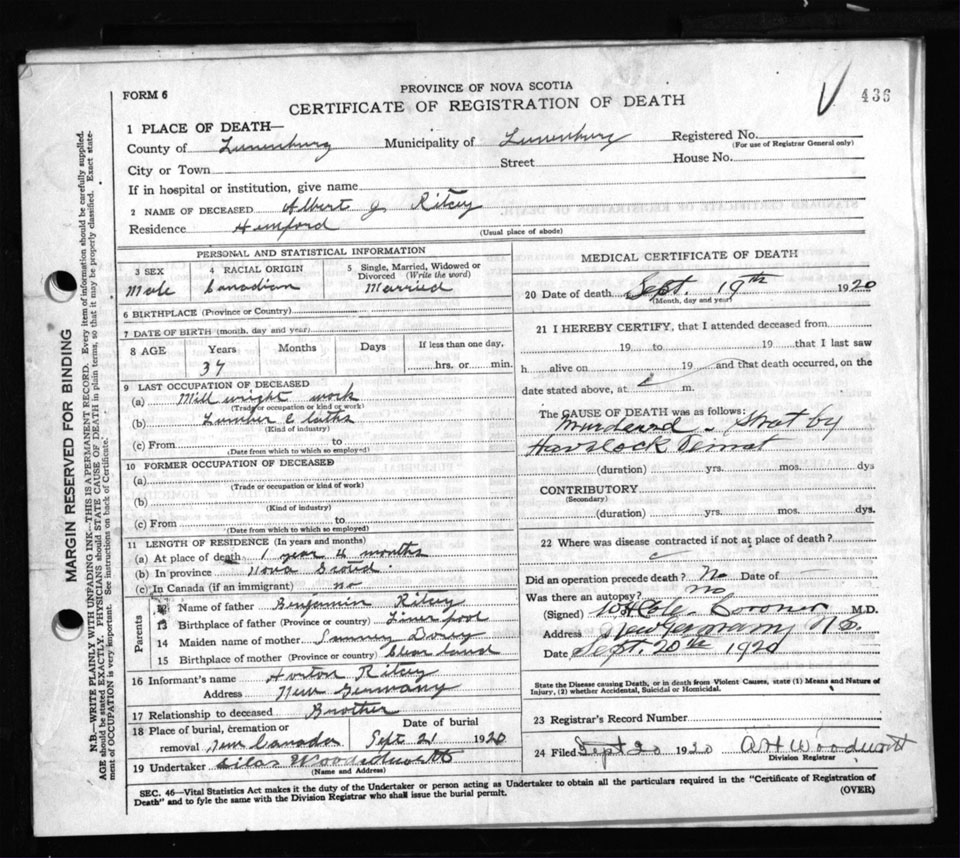 FORM 6
PROVINCE OF NOVA SCOTIA
CERTIFICATE OF REGISTRATION OF DEATH
436
1 PLACE OF DEATH—
County of Lunenburg Municipality of Lunenburg Registered No.
(For use of Registrar General only)
City or Town Street House No.
If in hospital or institution, give name
2 NAME OF DECEASED Albert J Ritcey
Residence Hemford
(Usual place of abode)
PERSONAL AND STATISTICAL INFORMATION
3 SEX 4 RACIAL ORIGIN 5 Single, Married, Widowed or Divorced (Write the word)
Male Canadian Married
6 BIRTHPLACE (Province or Country)
7 DATE OF BIRTH (month, day and year)
8 AGE Years Months Days If less than one day,
37 hrs. or min.
9 LAST OCCUPATION OF DECEASED
(a) Mill wright work
(Trade or occupation or kind or work)
(b) Lumber & laths
(Kind of industry)
(c) From to
(Date from which to which so employed)
10 FORMER OCCUPATION OF DECEASED
(a)
(Trade or occupation or kind of work)
(b)
(Kind of industry)
(c) From to
(Date from which to which so employed)
11 LENGTH OF RESIDENCE (In years and months)
(a) At place of death 1 year 4 months
(b) In province Nova Scotia
(c) In Canada (if an immigrant) no
Parents
12 Name of father Benjamin Ritcey
13 Birthplace of father (Province or country) Liverpool
14 Maiden name of mother Dorey
15 Birthplace of mother (Province or country)
16 Informant's name Horton Ritcey
Address New Germany
17 Relationship to deceased Brother
18 Place of burial, cremation or Date of burial
removal New Canada Sept 21 1920
19 Undertaker Silas
(Name and Address)
MEDICAL CERTIFICATE OF DEATH
20 Date of death Sept. 19th 1920
(Month, day and year)
21 I HEREBY CERTIFY, that I attended deceased from
19 to 19 that I last saw
h alive on 19 and that death occurred, on the
date stated above, at m.
The CAUSE OF DEATH was as follows:
Murdered - Shot by
Havelock
(duration) yrs. mos. dys
CONTRIBUTORY
(Secondary)
(duration) yrs. mos. dys.
22 Where was disease contracted if not at place of death?
Did an operation precede death? No Date of
Was there an autopsy? no
(Signed) W H Cole Coroner M.D.
Address New Germany N.S.
Date Sept. 20th 1920
State the Disease causing Death, or in death from Violent Causes, state (1) Means and Nature of
Injury, (2) whether Accidental, Suicidal or Homicidal.
23 Registrar's Record Number
24 Filed Sept 20 1920 A H Woodworth
Division Registrar
SEC. 46—Vital Statistics Act makes it the duty of the Undertaker or person acting as Undertaker to obtain all the particulars required in the "Certificate of Registration of
Death" and to fyle the same with the Division Registrar who shall issue the burial permit. (OVER)
MARGIN RESERVED FOR BINDING
N.B.—WRITE PLAINLY WITH UNFADING INK—THIS IS A PERMANENT RECORD. Every item of information should be carefully supplied.
AGE should be stated EXACTLY. PHYSICIANS should STATE CAUSE OF DEATH in plain terms, so that it may be properly classified. Exact statement
of OCCUPATION is very important. See instructions on back of Certificate.